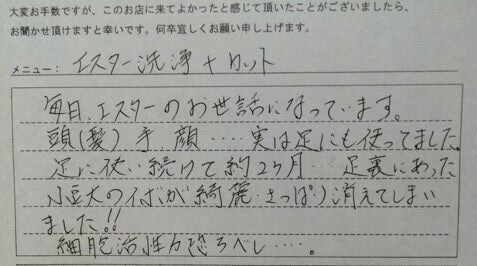 大変お手数ですが、このお店に来てよかったと感じて頂いたことがございましたら、
お聞かせ頂けますと幸いです。何卒宜しくお願い申し上げます。
メニュー: エスター洗浄+カット
毎日、エスターのお世話になっています。
頭(髪)手、顔‥‥‥実は足にも使ってました。
足に使い続けて約2ヶ月‥‥足裏にあった
小豆大のイボが綺麗さっぱり消えてしまい
ました!!
細胞活性力恐ろべし‥‥。